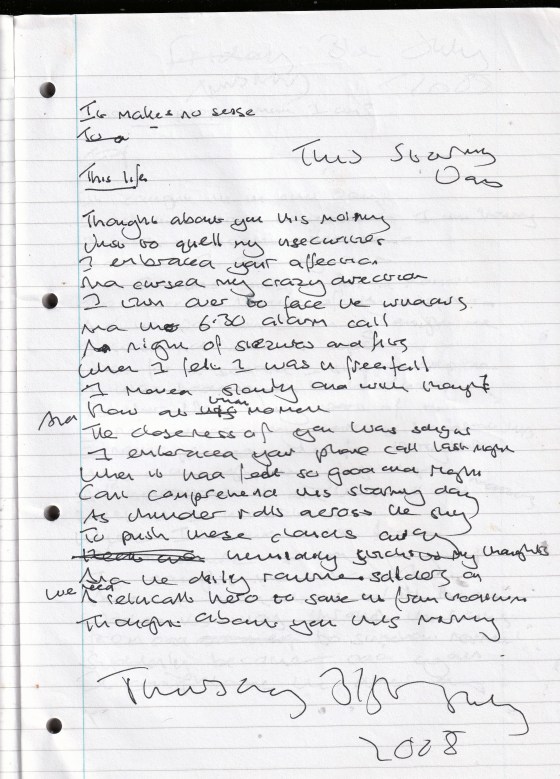 It makes no sense
To a
This Stormy
Day
This life
Thought about you this morning
Just to quell my insecurities
I embraced your affection
And cursed my crazy direction
I turn over to face the windows
And the 6.30 alarm call
A night of and fits
When I felt I was in freefall
I moved slowly and with thought
And know at this moment
The closeness of you was
I embraced your phone call last night
When it had felt so good and right
Can't comprehend this stormy day
As thunder rolls across the sky
To push these clouds away
humidity my thoughts
And the daily routine soldiers on
We need A reluctant hero to save us from
Thought about you this morning
Thursday 31st July
2008